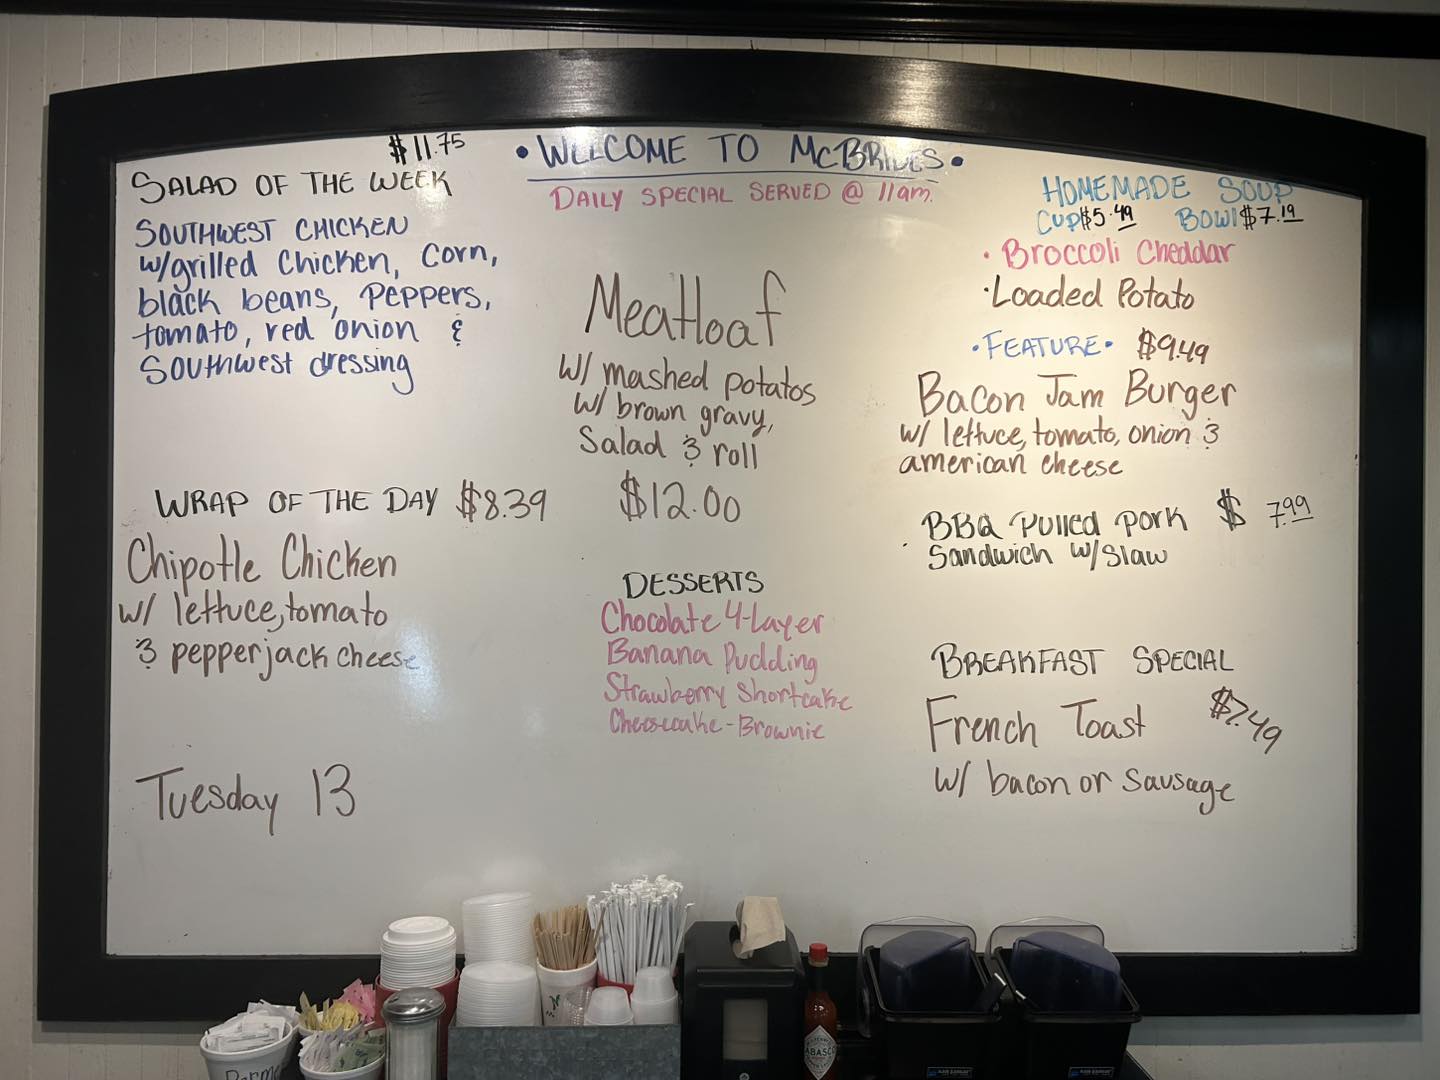 $11.75
SALAD OF THE WEEK
SOUTHWEST CHICKEN
w/grilled chicken, corn,
black beans, peppers,
tomato, red onion &
Southwest dressing
WRAP OF THE DAY $8.39
Chipotle Chicken
w/ lettuce, tomato
& pepperjack cheese
Tuesday 13
• WELCOME TO McBRIDES •
DAILY SPECIAL SERVED @ 11am.
Meatloaf
w/ mashed potatos
w/ brown gravy,
Salad & roll
$12.00
DESSERTS
Chocolate 4-Layer
Banana Pudding
Strawberry Shortcake
Cheesecake-Brownie
HOMEMADE SOUP
CUP $5.49 BOWL $7.19
• Broccoli Cheddar
• Loaded Potato
• FEATURE • $9.49
Bacon Jam Burger
w/ lettuce, tomato, onion &
american cheese
BBQ Pulled pork $ 7.99
Sandwich w/slaw
BREAKFAST SPECIAL
French Toast $7.49
w/ bacon or sausage
TABASCO